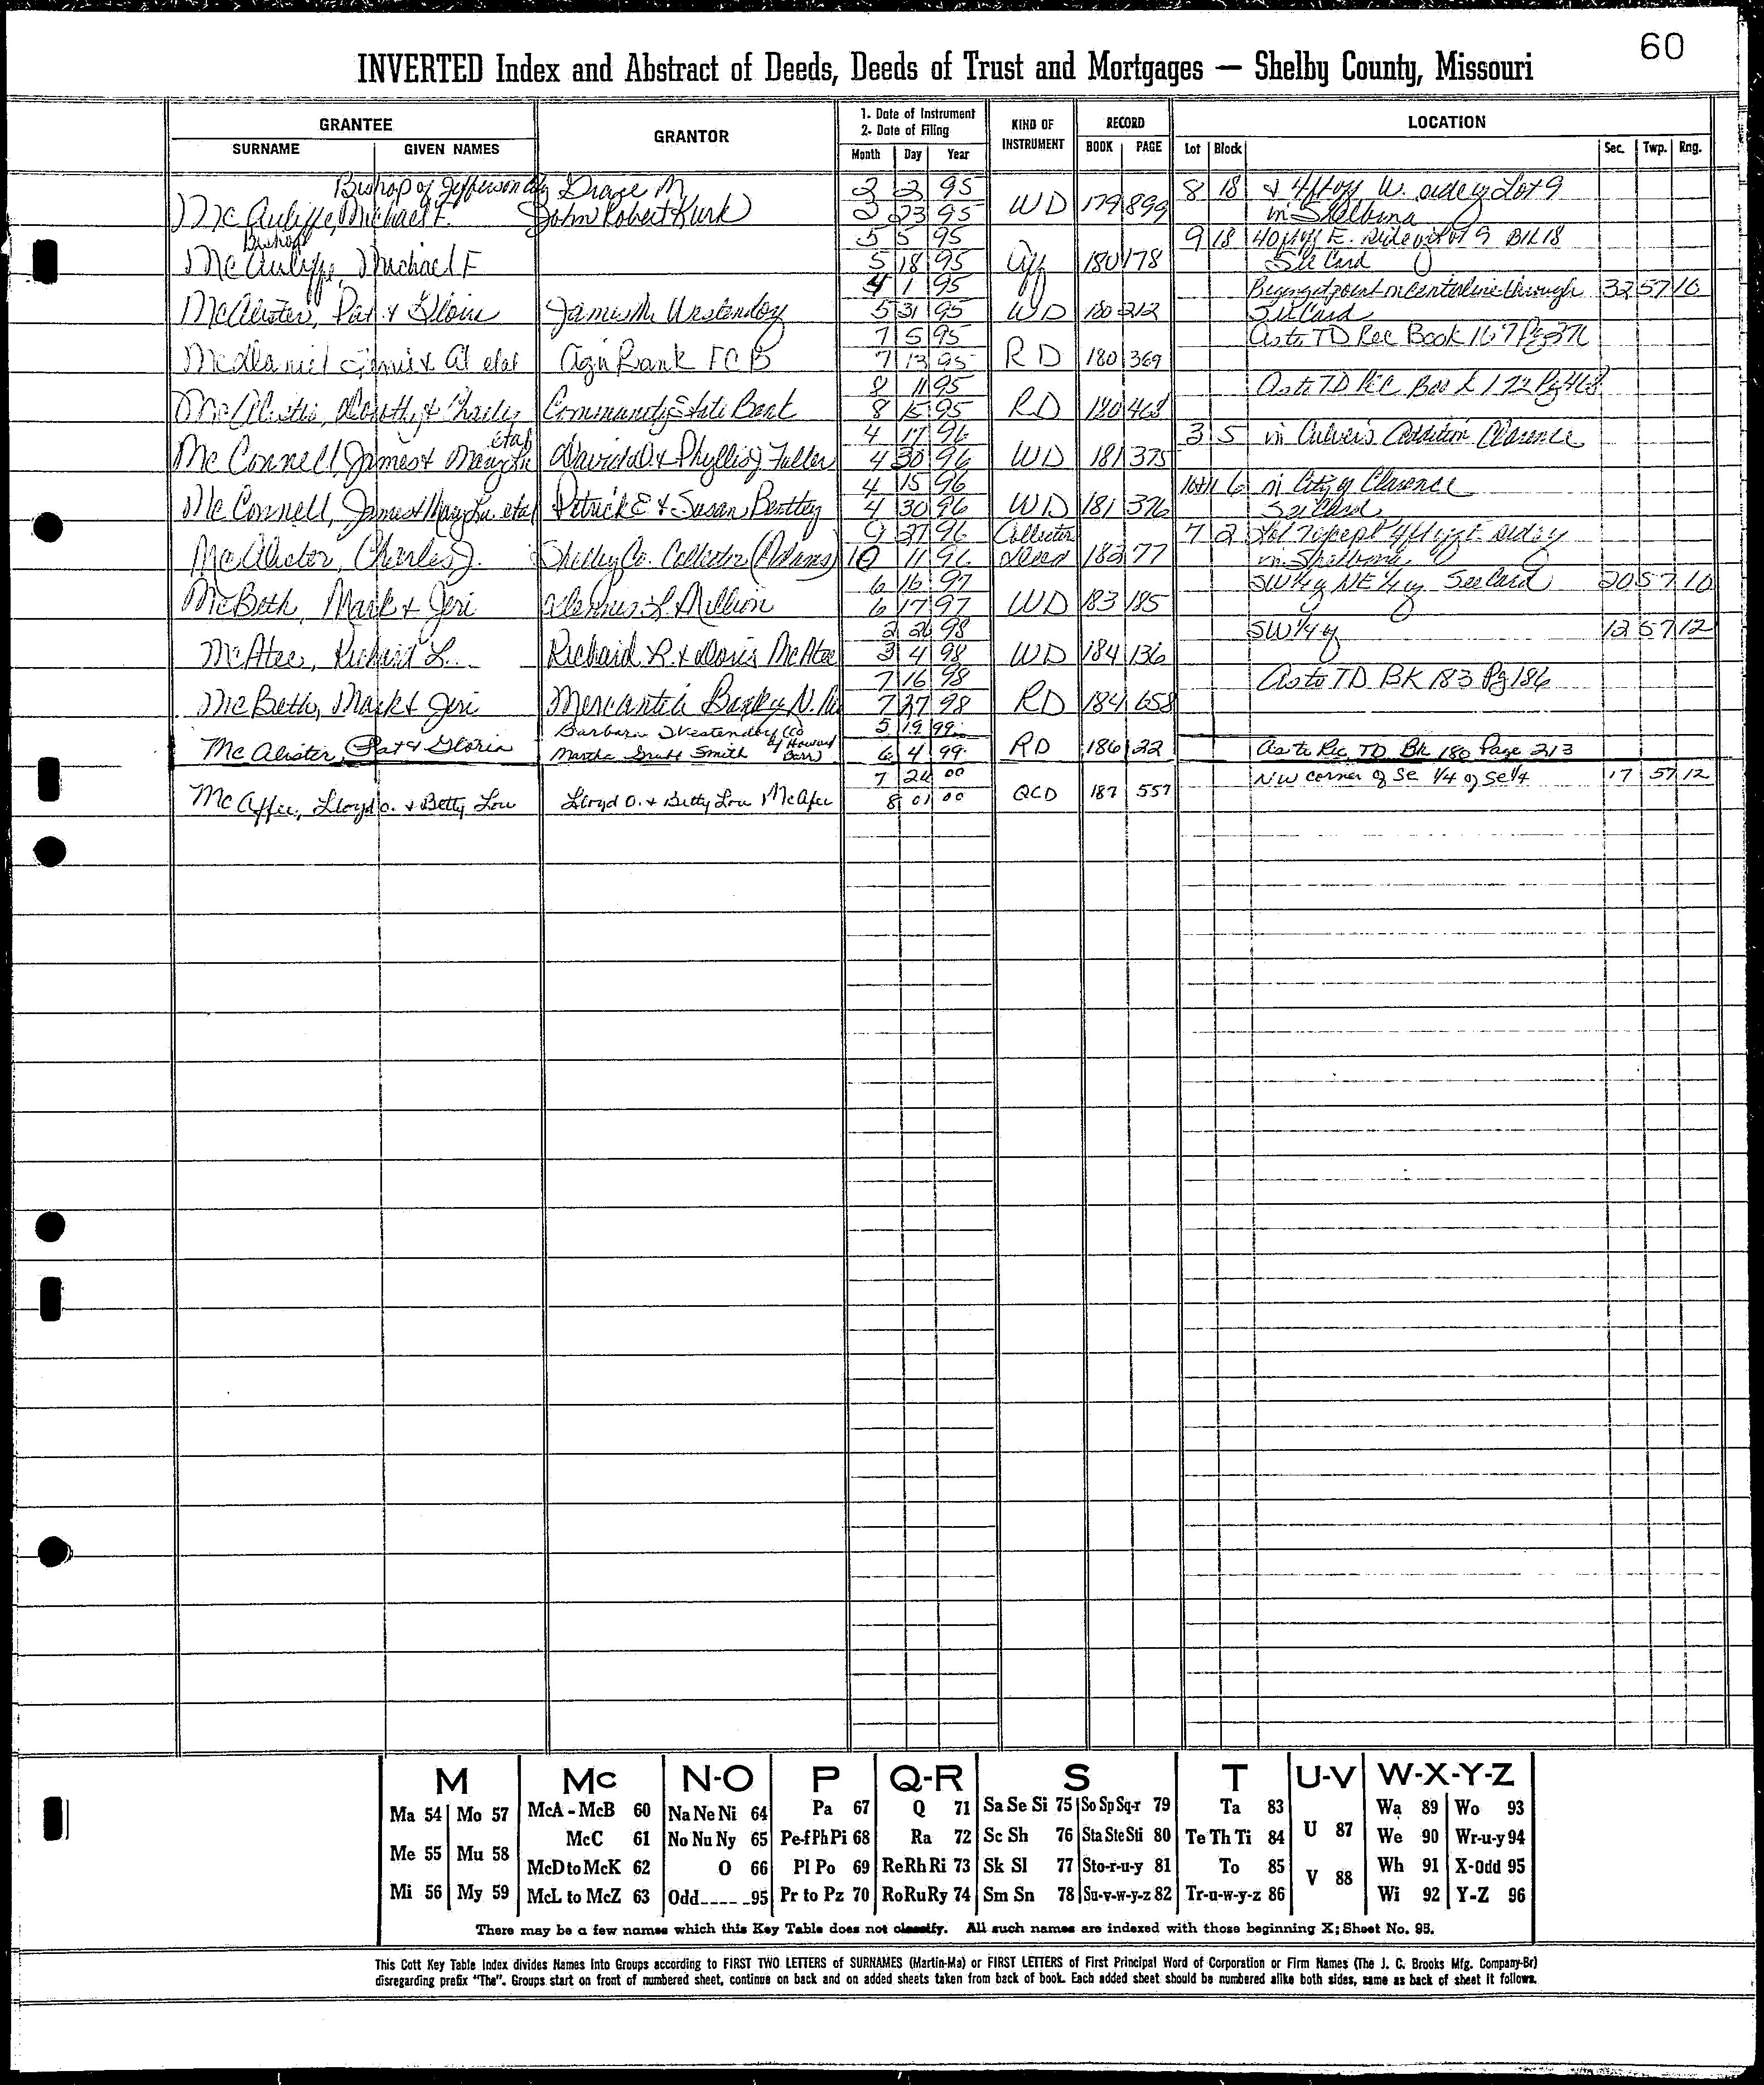 60
INVERTED Index and Abstract of Deeds, Deeds of Trust and Mortgages — Shelby County, Missouri
GRANTEE
SURNAME GIVEN NAMES
GRANTOR
1. Date of Instrument
2. Date of Filing
Month Day Year
KIND OF
INSTRUMENT
RECORD
BOOK PAGE
LOCATION
Lot Block Sec. Twp. Rng.
Bishop of Jefferson City Grace M 95 8 18 & 4 ft off W. side of Lot 9
McAuliffe, Michael F. John Robert Kurk 2 23 95 WD 179 899 in Shelbina
Bishop 5 5 95 9 18 40 ft off E. side of Lot 9 Blk 18
McAuliffe, Michael F 5 18 95 Aff 180 178 See Card
4 1 95 Beginning at point on Centerline through 32 57 10
McAlister, Pat & Gloria James M. Westendorf 5 31 95 WD 180 212 See Card
7 5 95 As to TD Rec Book 167 Pg 376
McDaniel & Al etal Agri Bank FCB 7 13 95 RD 180 369
8 11 95 As to TD Rec Book 172 Pg 468
McAlister, Dorothy & Charles Community State Bank 8 15 95 RD 180 468
etal 4 17 96 3 5 in Culver's Addition Clarence
McConnell, James & Mary Lu David D. & Phyllis J. Fuller 4 30 96 WD 181 375
4 15 96 10&11 6 in City of Clarence
McConnell, James & Mary Lu etal Patrick E & Susan Bentley 4 30 96 WD 181 376 See Card
9 27 96 Collector 7 2 Lot 7 except 4 ft off E. side of
McAlister, Charles J. Shelby Co. Collector (Adams) 10 11 96 Deed 182 77 in Shelbina
6 16 97 SW 1/4 of NE 1/4 of See Card 20 57 10
McBeth, Mark & Jeri L. Million 6 17 97 WD 183 185
2 26 98 SW 1/4 of 12 57 12
McAtee, Richard L. Richard L. & Doris McAtee 3 4 98 WD 184 136
7 16 98 As to TD BK 183 Pg 186
McBeth, Mark & Jeri Mercantile Bank N. 7 27 98 RD 184 658
Barbara Westendorf 5 19 99
McAlister, Pat & Gloria Martha Smith 6 4 99 RD 186 22 As to Rec TD Bk 180 Page 213
7 26 00 NW corner of SE 1/4 of SE 1/4 17 57 12
McAffee, Lloyd O. & Betty Lou Lloyd O. & Betty Lou McAfee 8 01 00 QCD 187 557
M Mc N-O P Q-R S T U-V W-X-Y-Z
Ma 54 Mo 57 McA - McB 60 Na Ne Ni 64 Pa 67 Q 71 Sa Se Si 75 So Sp Sq-r 79 Ta 83 U 87 Wa 89 Wo 93
Me 55 Mu 58 McC 61 No Nu Ny 65 Pe-f Ph Pi 68 Ra 72 Sc Sh 76 Sta Ste Sti 80 Te Th Ti 84 We 90 Wr-u-y 94
McD to McK 62 O 66 Pl Po 69 Re Rh Ri 73 Sk Sl 77 Sto-r-u-y 81 To 85 V 88 Wh 91 X-Odd 95
Mi 56 My 59 McL to McZ 63 Odd_ _ _ _ _95 Pr to Pz 70 Ro Ru Ry 74 Sm Sn 78 Su-v-w-y-z 82 Tr-u-w-y-z 86 Wi 92 Y-Z 96
There may be a few names which this Key Table does not classify. All such names are indexed with those beginning X; Sheet No. 95.
This Cott Key Table Index divides Names Into Groups according to FIRST TWO LETTERS of SURNAMES (Martin-Ma) or FIRST LETTERS of First Principal Word of Corporation or Firm Names (The J. C. Brooks Mfg. Company-Br)
disregarding prefix "The". Groups start on front of numbered sheet, continue on back and on added sheets taken from back of book. Each added sheet should be numbered alike both sides, same as back of sheet it follows.